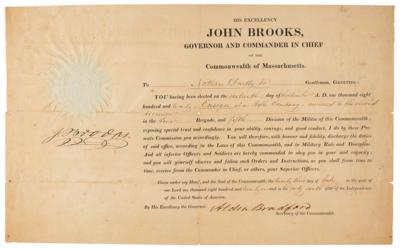 HIS EXCELLENCY
JOHN BROOKS,
GOVERNOR AND COMMANDER IN CHIEF
OF THE
COMMONWEALTH OF Massachusetts.
To Gentleman, GREETING:
YOU having been elected on the day of A. D. one thousand eight
hundred and Ensign of a Company
in the Brigade, and fifth Division of the Militia of this Commonwealth;
reposing special trust and confidence in your ability, courage, and good conduct, I do by these Pre-
sents Commission you accordingly. You will therefore, with honour and fidelity, discharge the duties
of said office, according to the Laws of this Commonwealth, and to Military Rule and Discipline.
And all inferior Officers and Soldiers are hereby commanded to obey you in your said capacity;
and you will yourself observe and follow such Orders and Instructions, as you shall from time to
time, receive from the Commander in Chief, or others, your Superior Officers.
J Brooks
Given under my Hand, and the Seal of the Commonwealth, the day of in the year of
our Lord one thousand eight hundred and and in the of the Independence of
the United States of America.
By His Excellency the Governor,
Alden Bradford
Secretary of the Commonwealth.